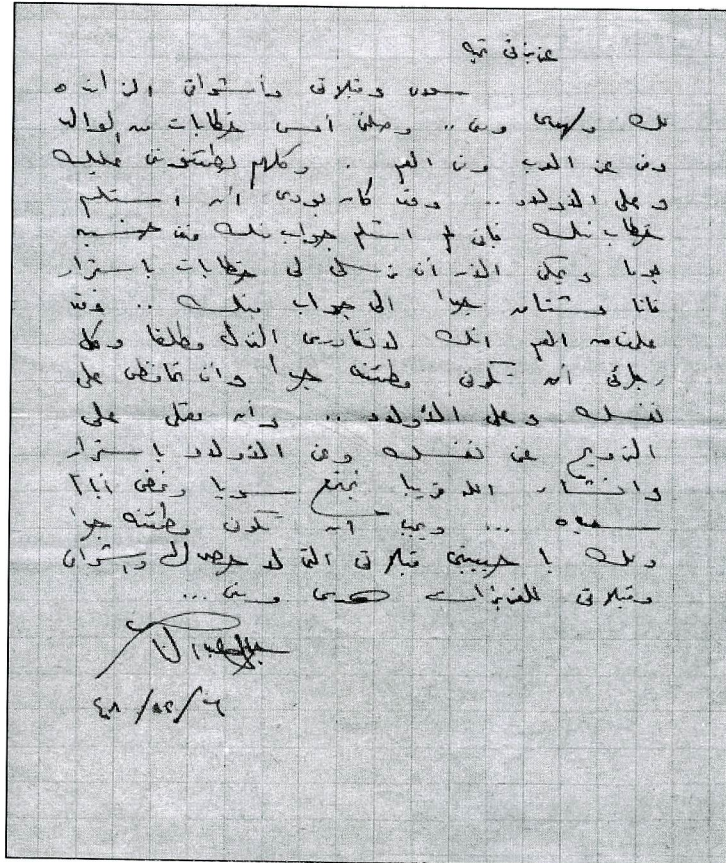 عزيزتى تحيه
سلامى وقبلاتى وأشواقى الزائده
لك وهدى ومنى .. وصلنى أمس خطابات من الوالد
ومن عز العرب ومن العم . وكلهم يطمئنونى عليك
وعلى الأولاد .. وقد كان بودى أن استلم
خطاب منك فانى لم استلم جواب منك منذ
جدا ويمكن الآن أن ترسلى لى خطابات باستمرار
فأنا مشتاق جدا الى جواب منك .. وقد
علمت من العم انك لا تغادرى المنزل مطلقا وكل
رجائى أن تكونى مطمئنه جدا وأن تحافظى على
نفسك وعلى الأولاد .. وأن تعملى على
الترويح عن نفسك وعن الأولاد باستمرار
وانشاء الله قريبا نجتمع سويا ونمضى أياما
سعيده ... ويجب أن تكونى مطمئنه جدا
ولك يا حبيبتى قبلاتى التى لا حصر لها وأشواقى
وقبلاتى للعزيزات هدى ومنى ...
جمال عبد الناصر